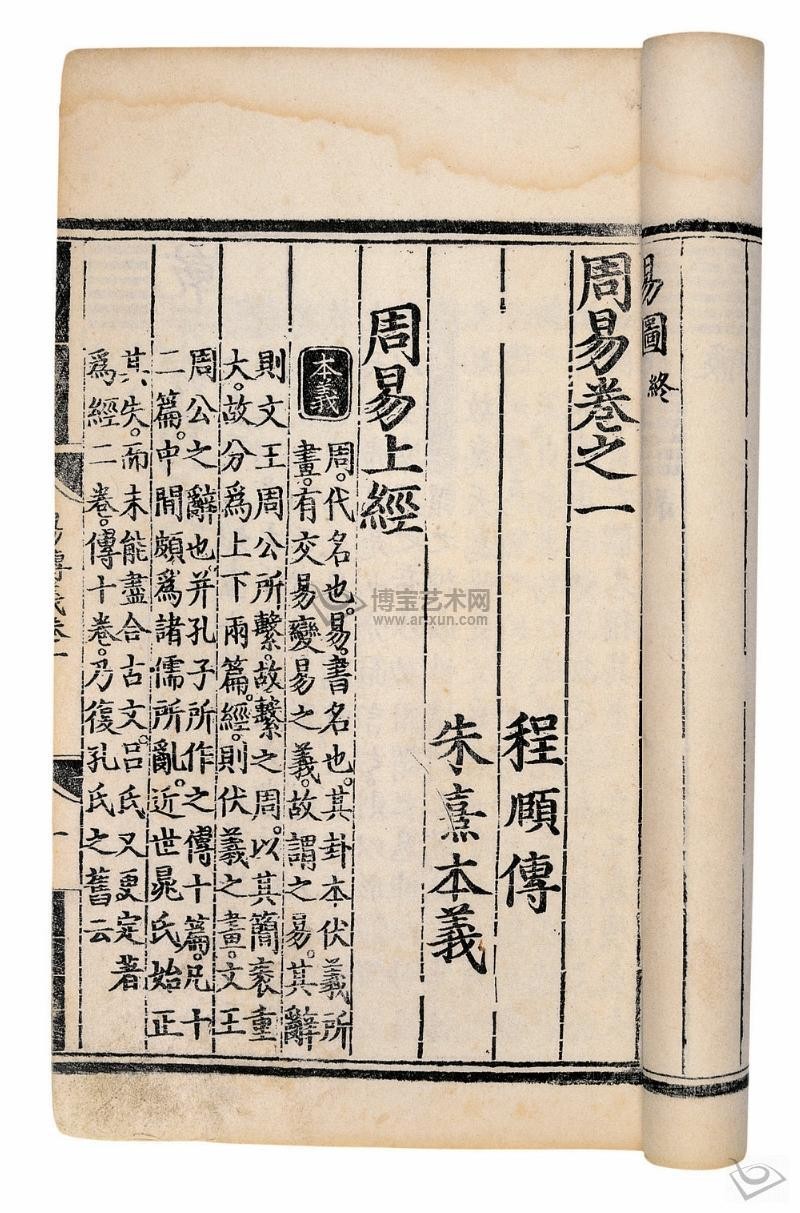 易圖終
周易卷之一
程頤傳
朱熹本義
周易上經
本義
周。代名也。易。書名也。其卦本伏羲所
畫。有交易變易之義。故謂之易。其辭
則文王周公所繫。故繫之周。以其簡袠重
大。故分爲上下兩篇。經。則伏羲之畫。文王
周公之辭也。并孔子所作之傳十篇。凡十
二篇。中間頗爲諸儒所亂。近世晁氏始正
其失。而未能盡合古文。吕氏又更定著
爲經二卷。傳十卷。乃復孔氏之舊云
易傳義卷一
一
博宝艺术网
www.artxun.com